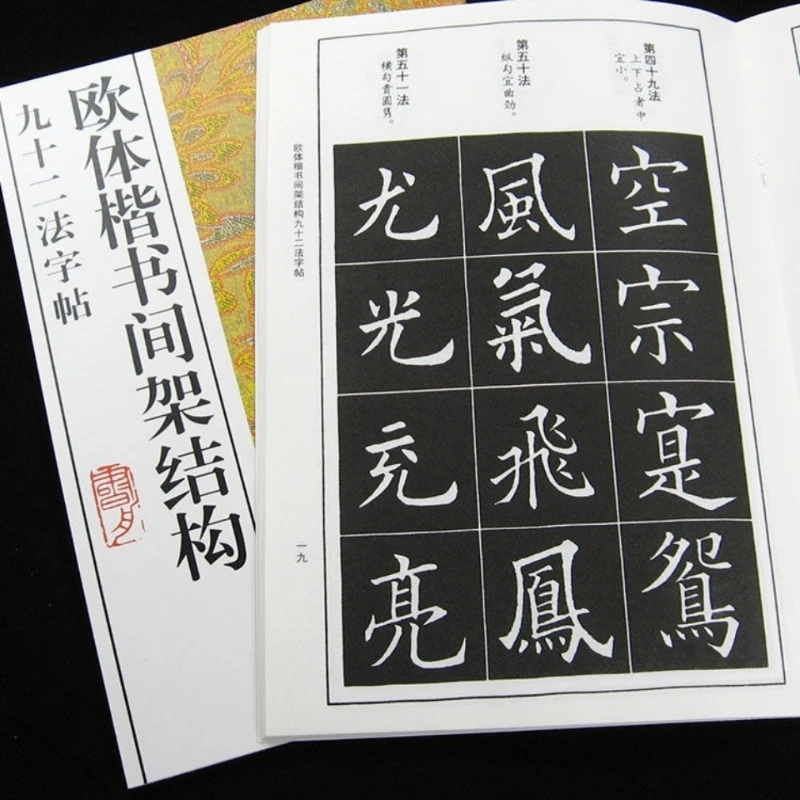 欧体楷书间架结构
九十二法字帖
第四十九法
上下占者中
宜小。
第五十法
纵勾宜曲劲。
第五十一法
横勾贵圆隽。
空宗寔鴛
風氣飛鳳
尤光充亮
欧体楷书间架结构九十二法字帖
一九